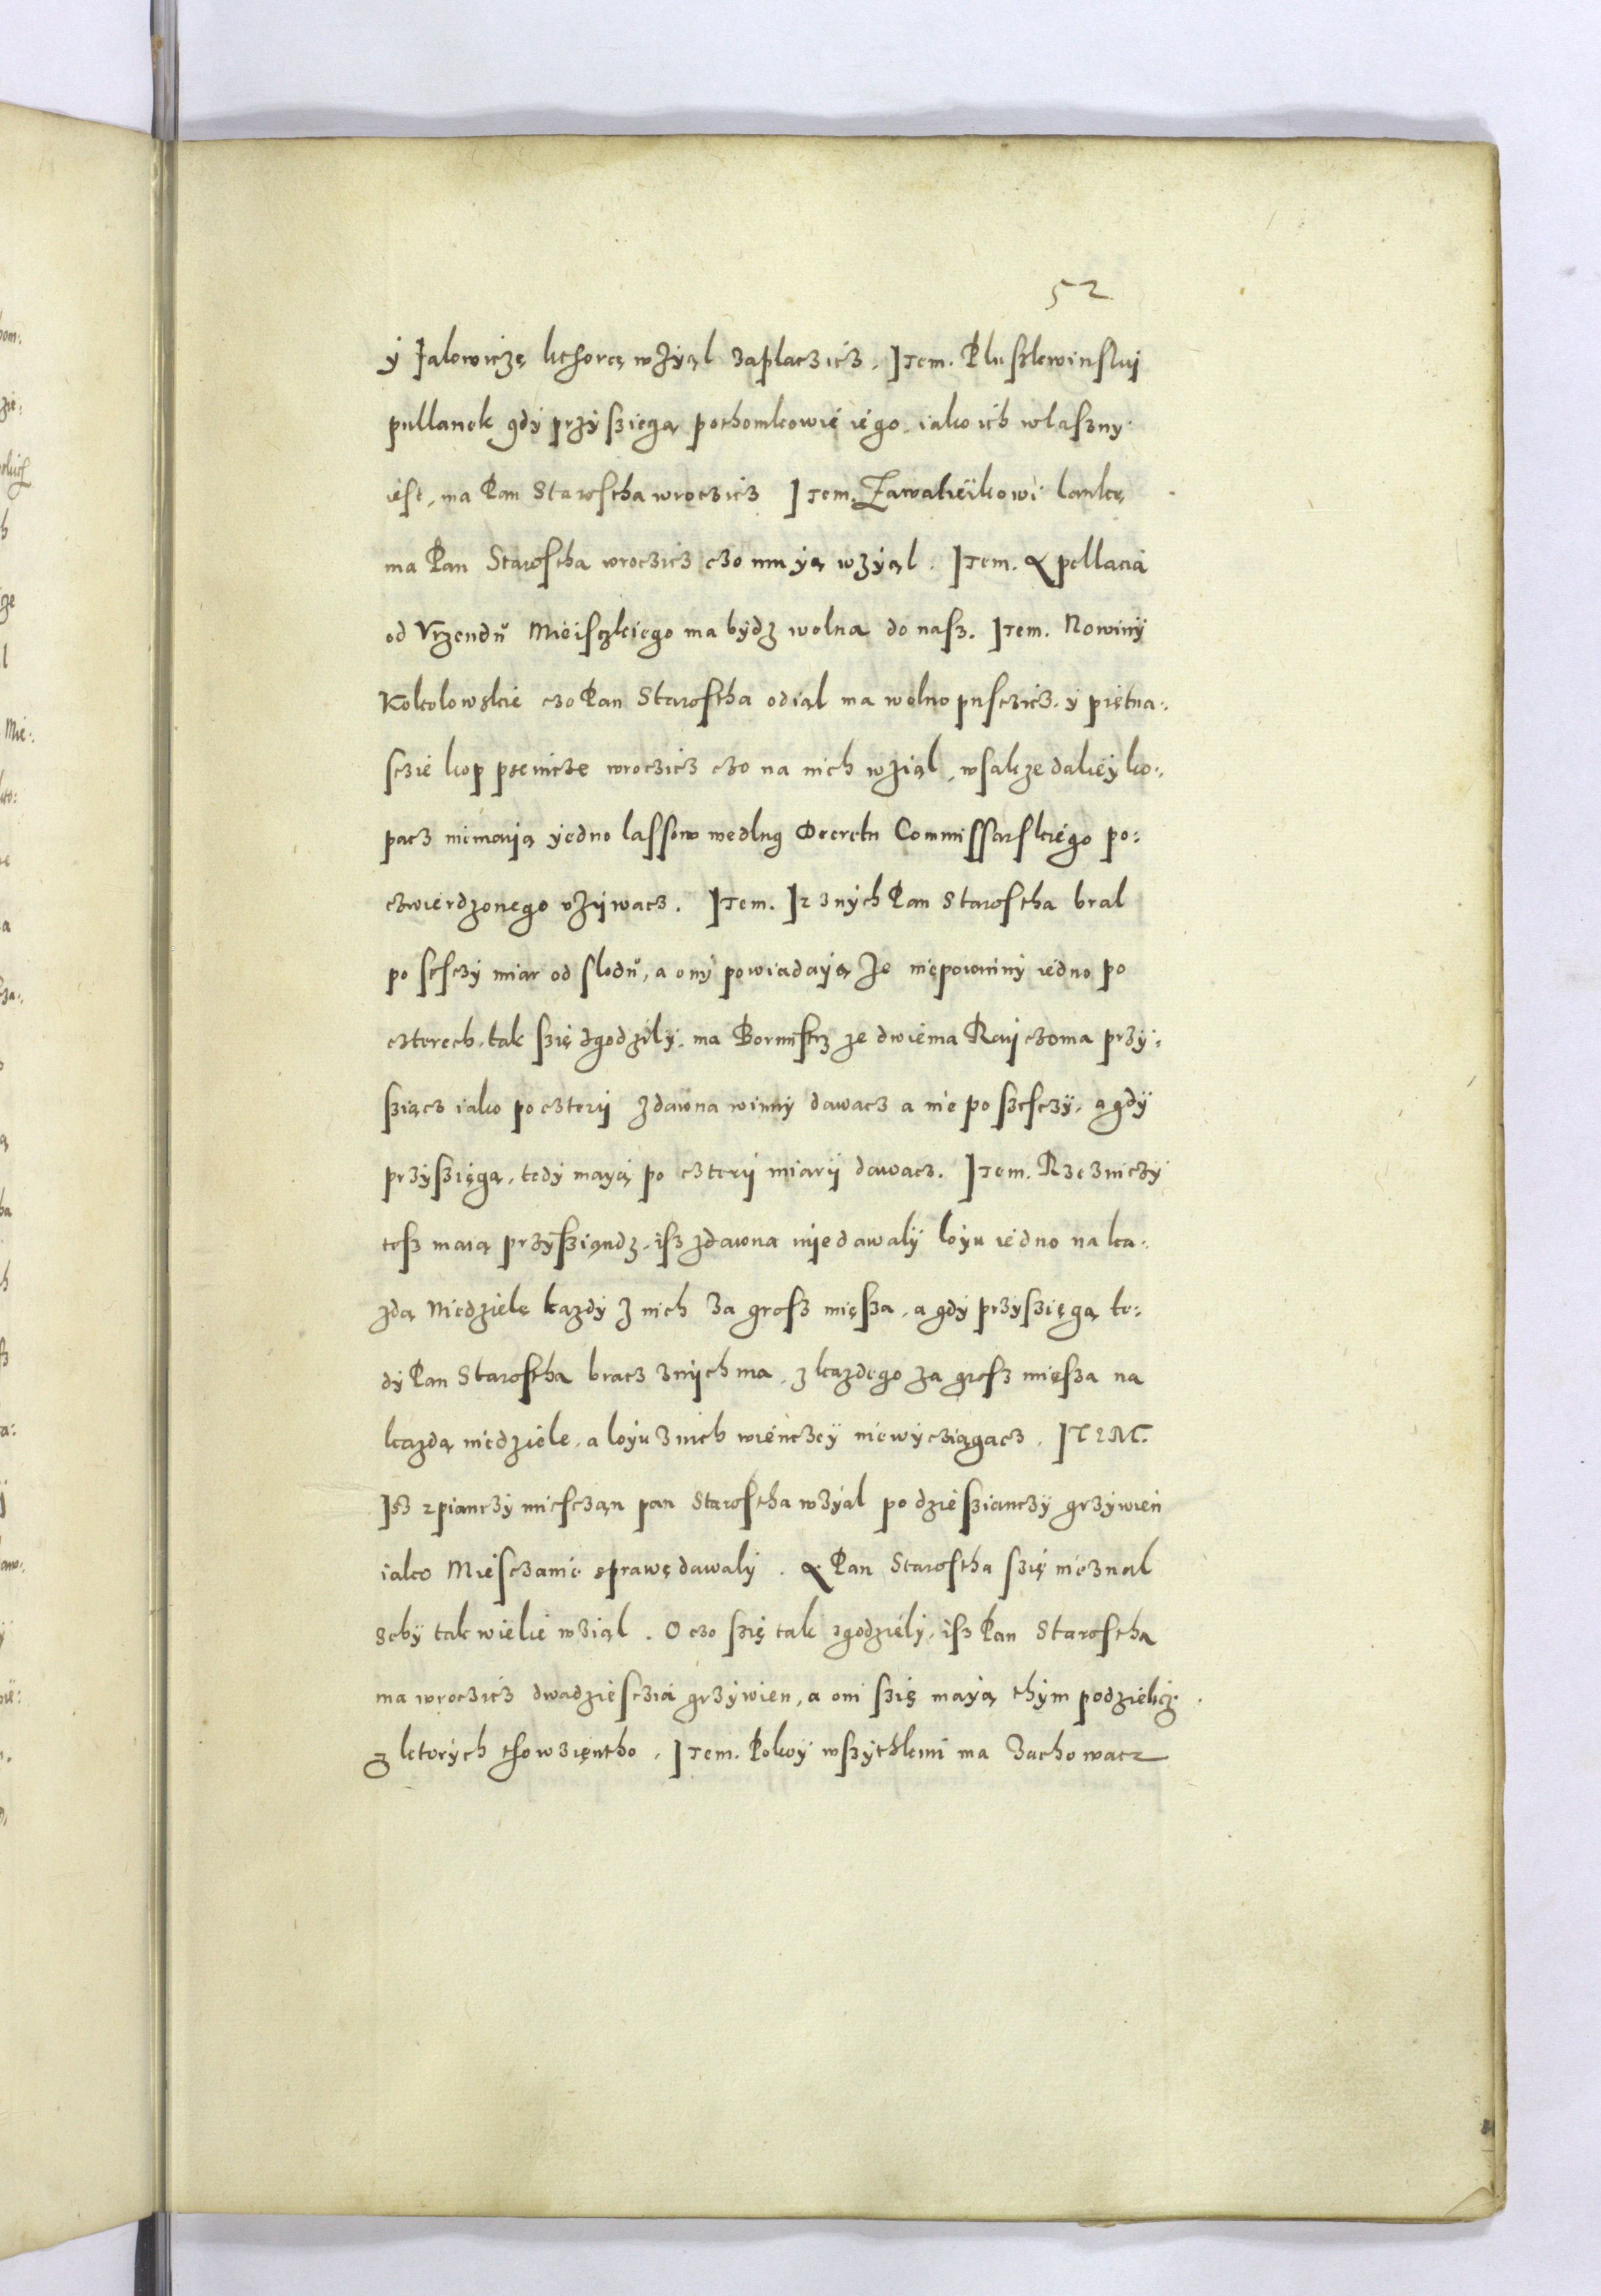 52
ÿ Jalowiczę kthorą wżÿął zaplaczicz. Item. Pluszkwinskij
pullanek gdÿ przÿsziegą pothomkowie iego, iako ich własznÿ
iest, ma Pan Starostha wroczicz Item. Zawaliëikowi lankę
ma Pan Starostha wroczicz czo mu ÿą wzÿął. Item. Apellacia
od Vrzendŭ Mieisczkiego ma bÿdz wolna do nasz. Item. Nowinÿ
Kokolowskie czo Pan Starostha odiął ma wolno pusczicz. ÿ piętna:
sczie kop psenicze wroczicz czo na nich wziął, wsakze dalieÿ ko:
pacz niemaÿą ÿedno lassow wedlug Decretu Commissarskiego po:
czwierdzonego vżÿwacz. Item. Iz znÿch Pan Starostha bral
po sesczÿ miar od slodŭ, a onÿ powiadaÿą że niepowinnÿ iedno po
czterech, tak szię zgodzilÿ, ma Bormistrz ze dwiema Raÿczoma przÿ:
sziącz iako po czterÿ zdawna winnÿ dawacz a nie po szesczÿ, a gdÿ
przÿszięgą, tedÿ maÿą po czterÿ miarÿ dawacz. Item. Rzezniczÿ
tesz maią przÿsziąndz, isz zdawna niedawalÿ loÿu iedno na ka:
zdą Niedzielę kazdÿ z nich za grosz mięsza, a gdÿ przÿszięgą te:
dÿ Pan Starostha bracz znÿch ma, z kazdego za grosz mięsza na
kazdą niedziele, a loÿu znich wienczeÿ niewÿcziągacz. ITEM.
Isz zpianczÿ miesczan pan Starostha wzÿął po dzieszianczÿ grzÿwien
iako Miesczanie sprawę dawalÿ. A Pan Starostha szię nieznal
zebÿ tak wielie wziął. O czo szię tak zgodzielÿ, isz Pan Starostha
ma wroczicz dwadziesczia grzÿwien, a oni szię maÿą thÿm podzielicz
z ktorÿch tho wzięntho. Item. Pokoÿ wszÿthkimi ma zachowacz